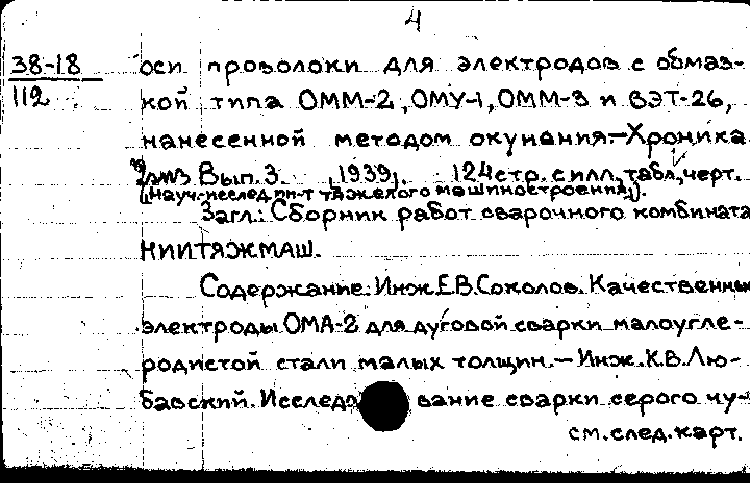 4
38-18 оси проволоки для электродов с обмаз-
112 кой типа ОММ-2, ОМУ-1, ОММ-3 и ВЭТ-26,
нанесенной методом окунания.-Хроника.
Вып. 3. 1939, 124 стр. с илл., табл., черт.
(Науч.-исслед. ин-т тяжелого машиностроения).
Загл.: Сборник работ сварочного комбината
НИИТЯЖМАШ.
Содержание: Инж. Е.В. Соколов. Качественные
электроды ОМА-2 для дуговой сварки малоугле-
родистой стали малых толщин.-Инж. К.В. Лю-
бавский. Исследование сварки серого чу-
см. след. карт.